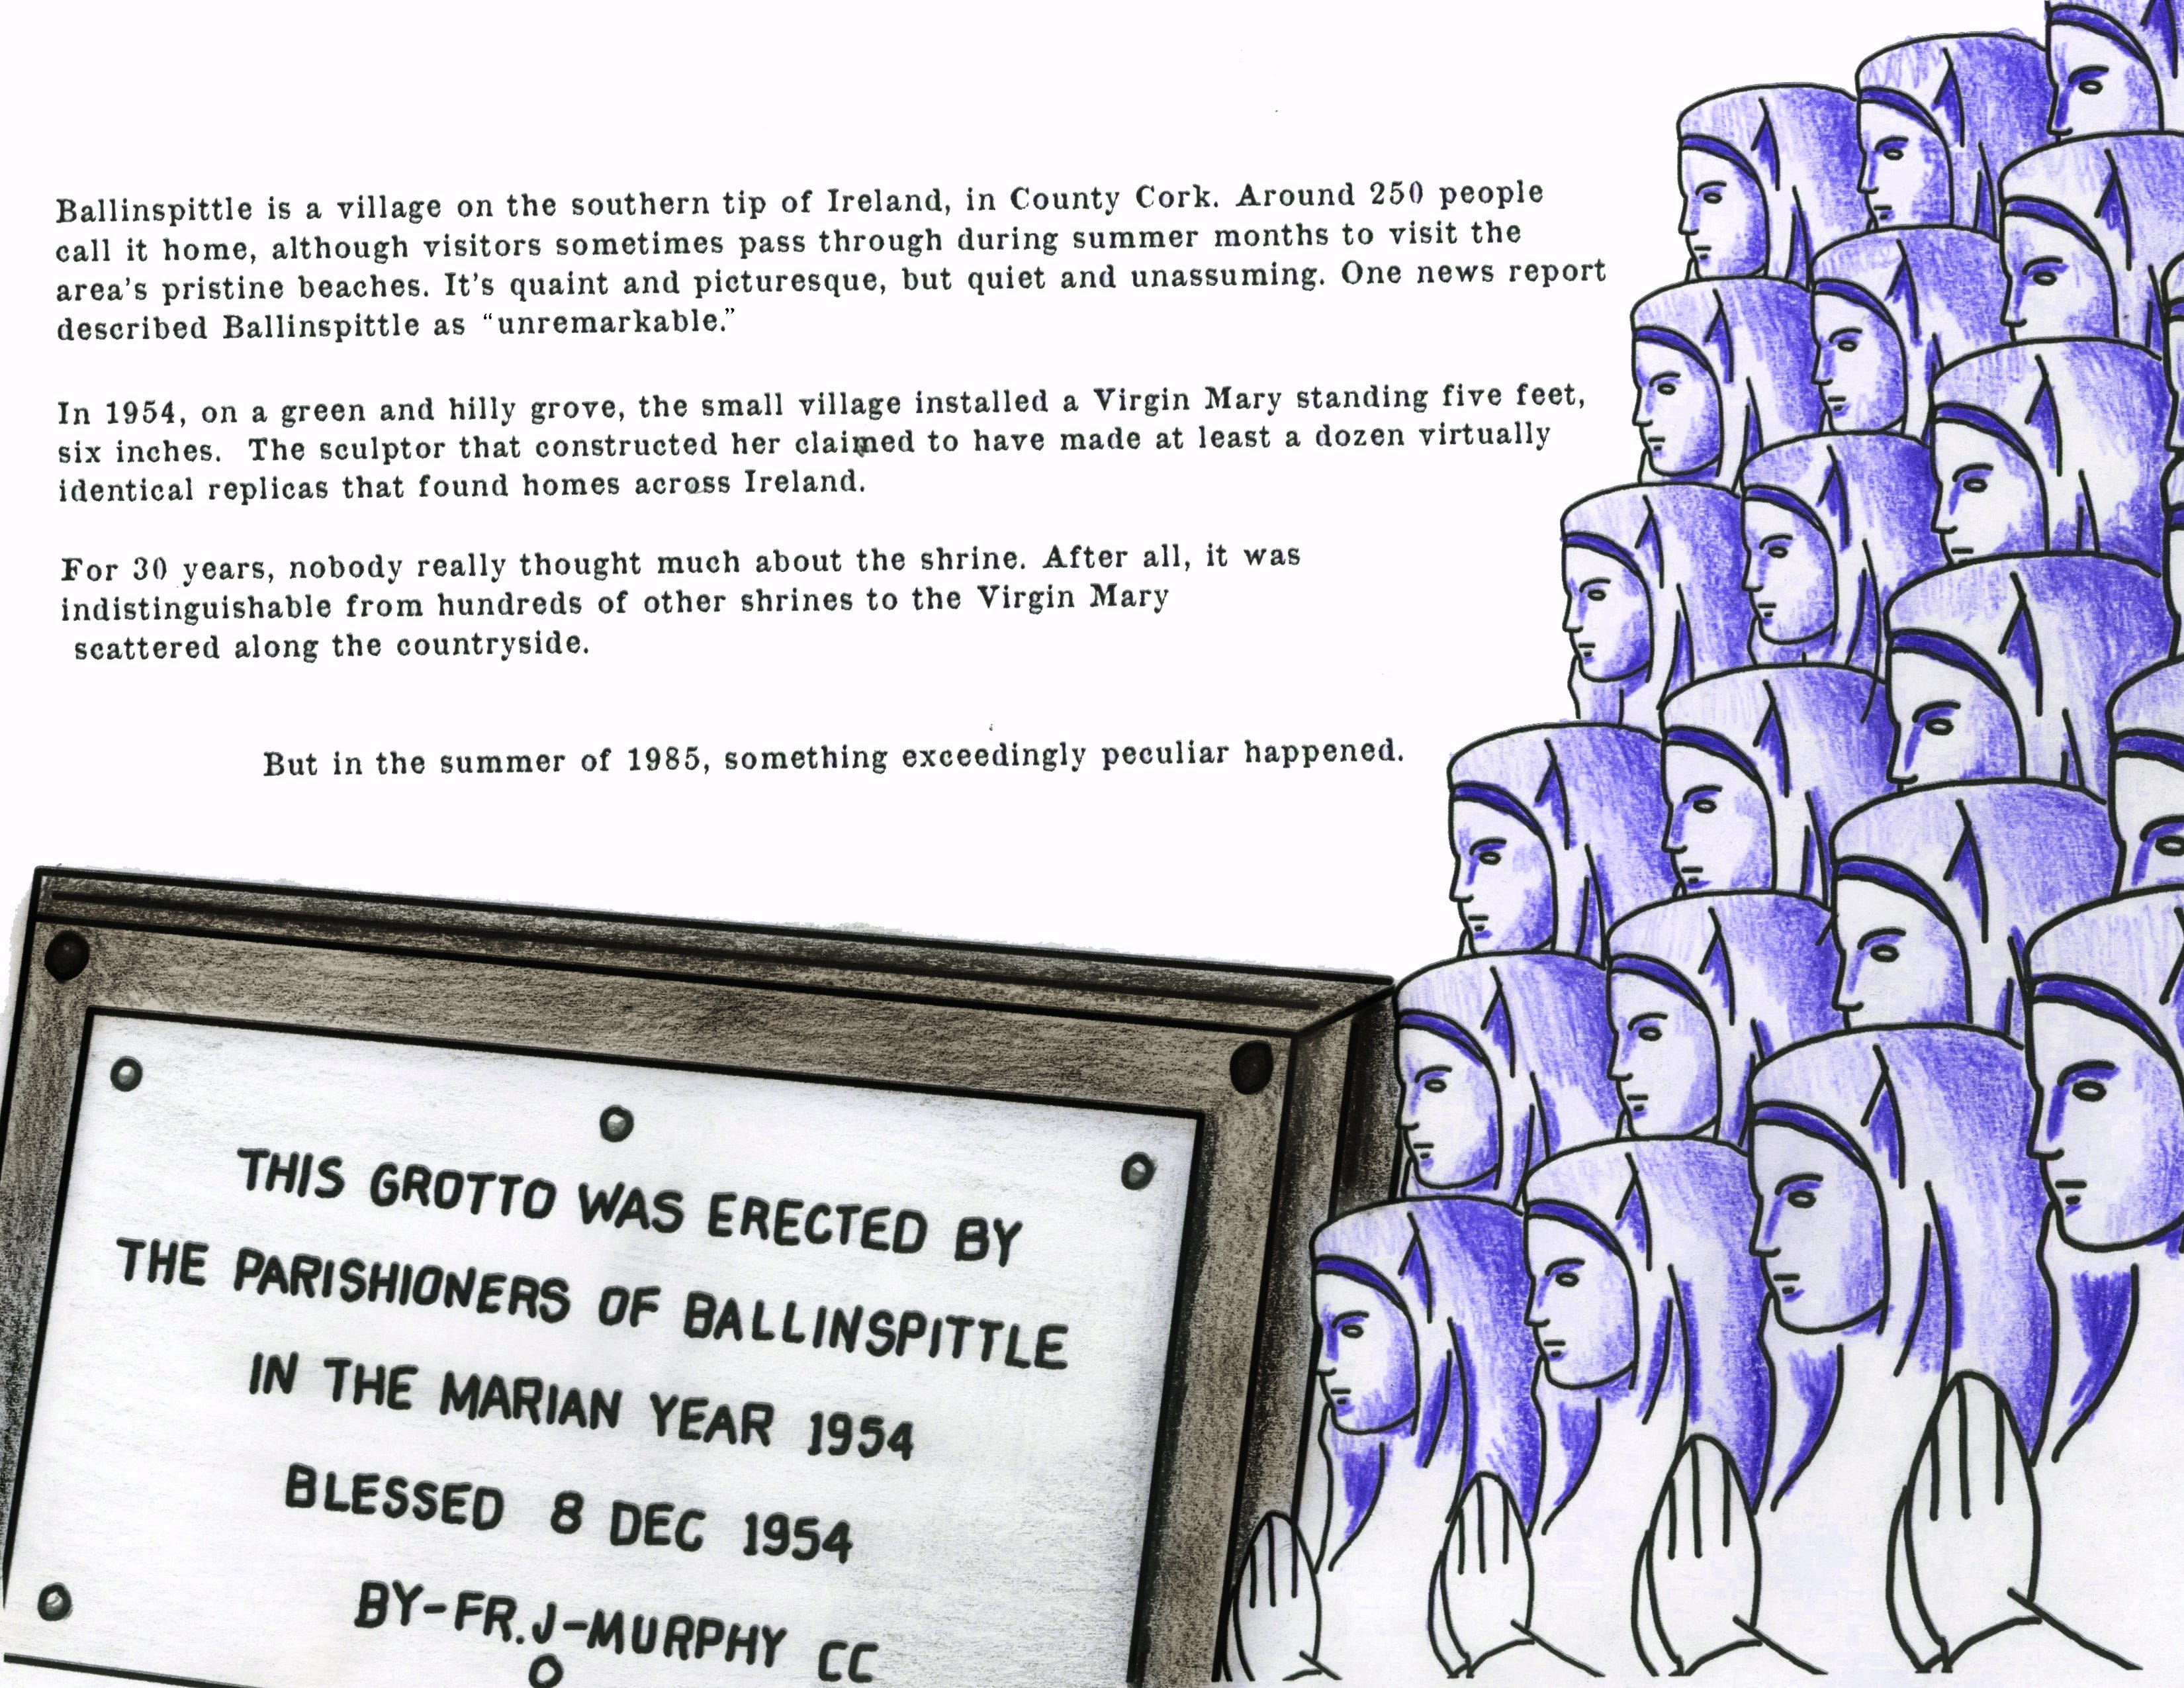 Ballinspittle is a village on the southern tip of Ireland, in County Cork. Around 250 people
call it home, although visitors sometimes pass through during summer months to visit the
area's pristine beaches. It's quaint and picturesque, but quiet and unassuming. One news report
described Ballinspittle as “unremarkable.”
In 1954, on a green and hilly grove, the small village installed a Virgin Mary standing five feet,
six inches. The sculptor that constructed her claimed to have made at least a dozen virtually
identical replicas that found homes across Ireland.
For 30 years, nobody really thought much about the shrine. After all, it was
indistinguishable from hundreds of other shrines to the Virgin Mary
scattered along the countryside.
But in the summer of 1985, something exceedingly peculiar happened.
THIS GROTTO WAS ERECTED BY
THE PARISHIONERS OF BALLINSPITTLE
IN THE MARIAN YEAR 1954
BLESSED 8 DEC 1954
BY-FR.J-MURPHY CC